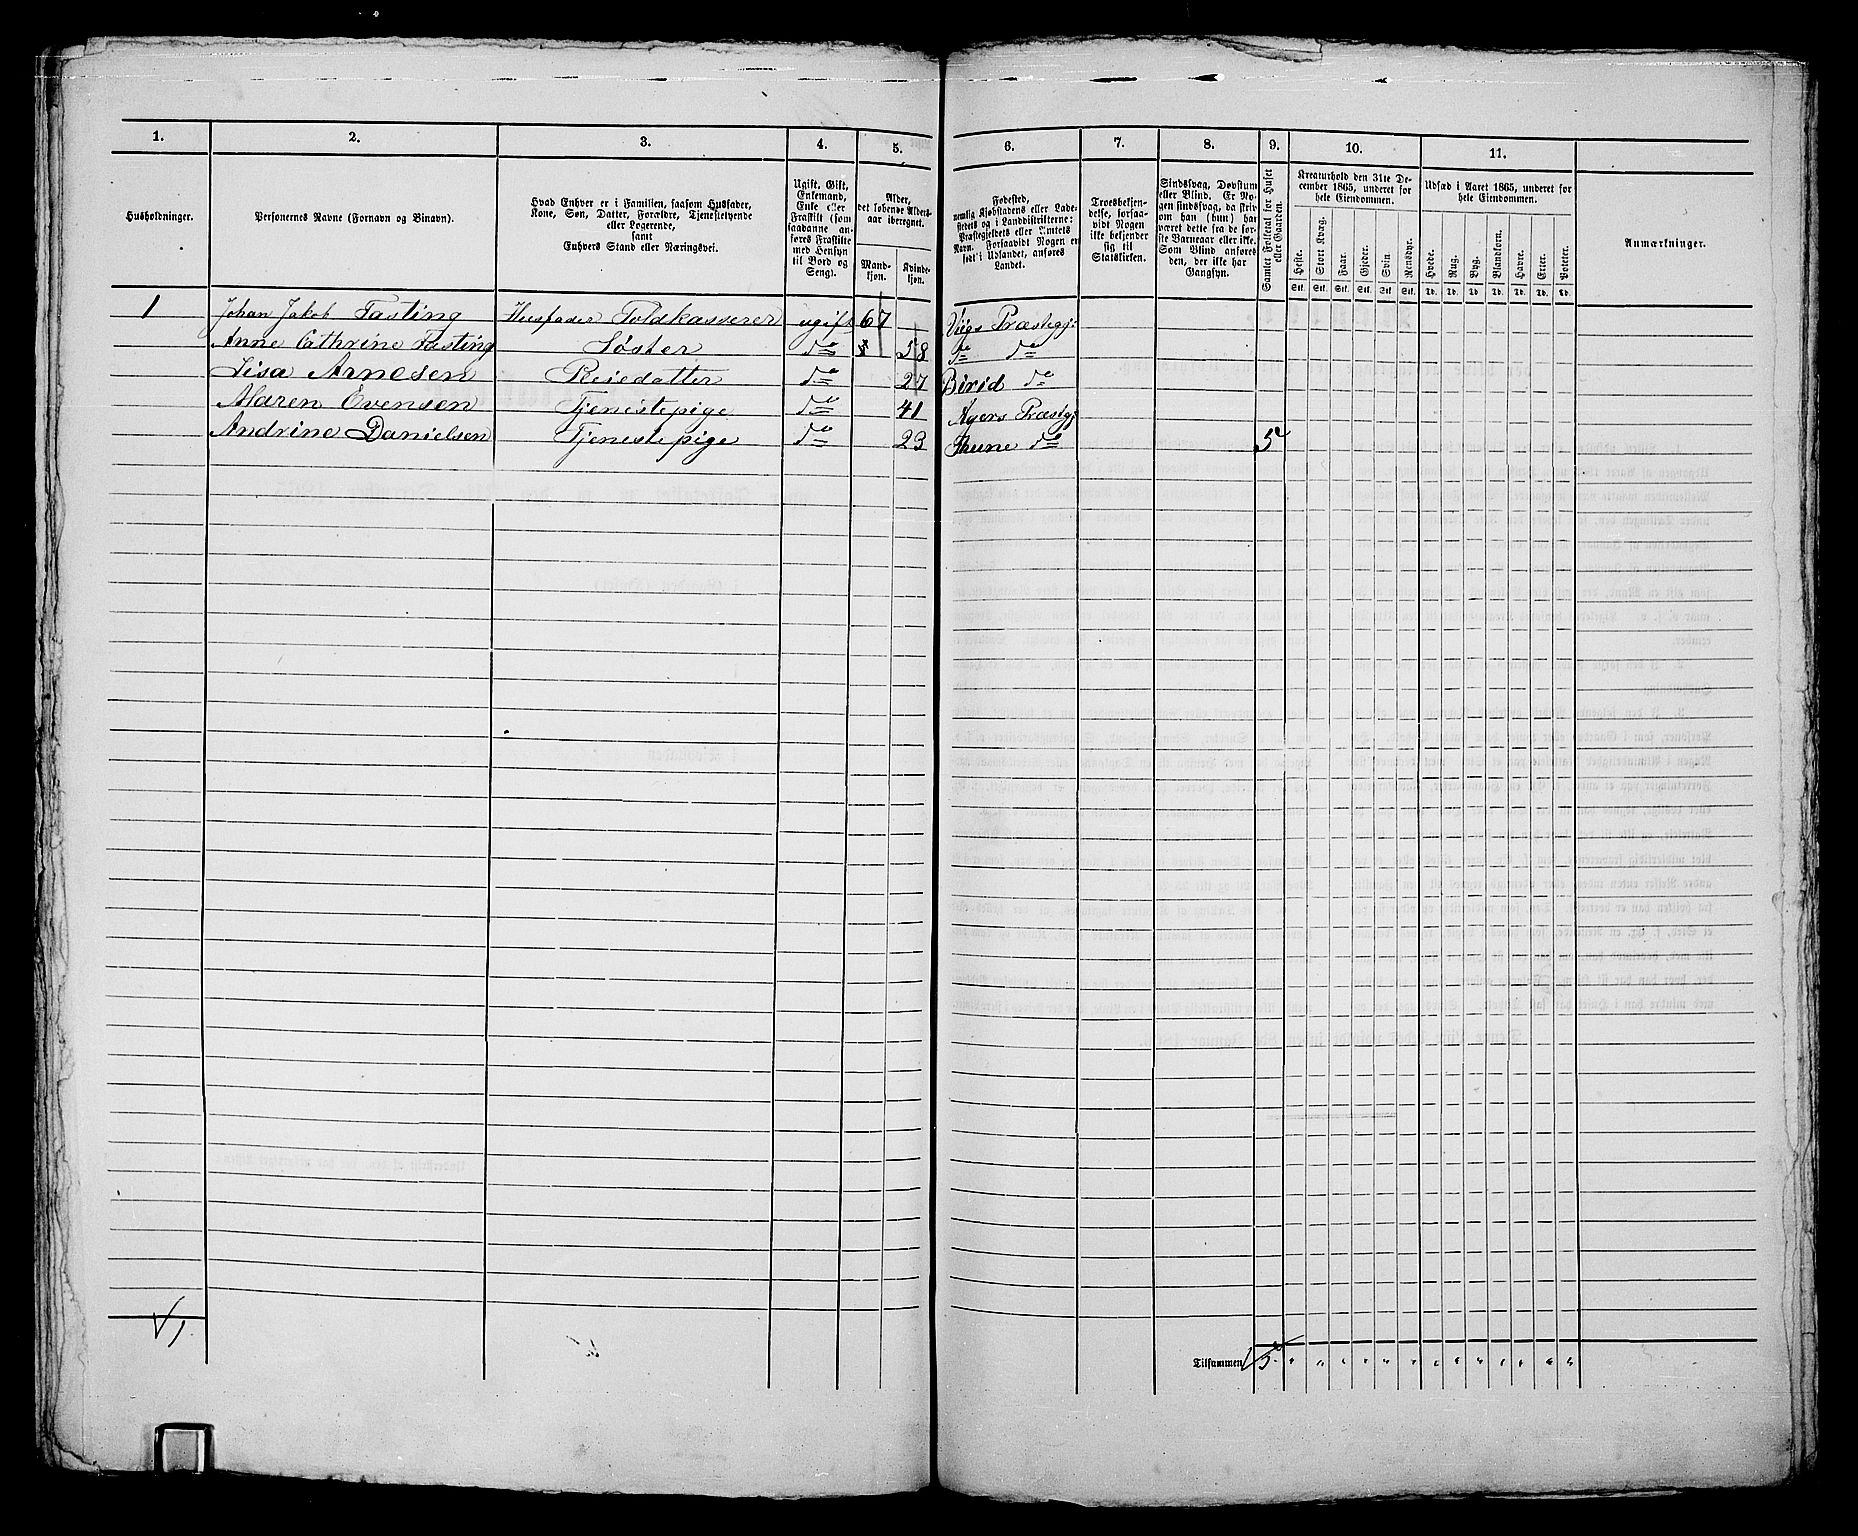 1. 2. 3. 4. 5. 6. 7. 8. 9. 10. 11.
Husholdninger.
Personernes Navne (Fornavn og Binavn).
Hvad Enhver er i Familien, saasom Husfader,
Kone, Søn, Datter, Forældre, Tjenestetyende
eller Logerende,
samt
Enhvers Stand eller Næringsvei.
Ugift, Gift,
Enkemand,
Enke eller
Fraskilt (som
saadanne an-
føres Fraskilte
med Hensyn
til Bord og
Seng).
Alder,
det løbende Alders-
aar iberegnet.
Mand-
kjøn.
Kvinde-
kjøn.
Fødested,
nemlig Kjøbstadens eller Lade-
stedets og i Landdistrikterne:
Præstegjeldets eller Amtets
Navn. Forsaavidt Nogen er
født i Udlandet, anføres
Landet.
Troesbekjen-
delse, forsaa-
vidt Nogen
ikke bekjender
sig til
Statskirken.
Sindssvag, Døvstum
eller Blind. Er No-
gen sindssvag, da skriv
om han (hun) har
været dette fra de før-
ste Barneaar eller ikke.
Som Blind anføres
den, der ikke har
Gangsyn.
Samlet Folketal for Huset
eller Gaarden.
Kreaturhold den 31te De-
cember 1865, underet for
hele Eiendommen.
Heste. Stort Kvæg. Faar. Gjeder. Svin. Rensdyr.
Stk. Stk. Stk. Stk. Stk. Stk.
Udsæd i Aaret 1865, underet for
hele Eiendommen.
Hvede. Rug. Byg. Blandkorn. Havre. Erter. Poteter.
Td. Td. Td. Td. Td. Td. Td.
Anmærkninger.
1 Johan Jakob Fasting Husfader Toldkasserer ugift 67 Viigs Præstegj:
Anne Cathrine Fasting Søster do 58 do do
Lisa Arnesen Pleiedatter do 27 Birid do
Maren Evensen Tjenestepige do 41 Agers Præstgj
Andrine Danielsen Tjenestepige do 23 Thune do 5
Tilsammen 5